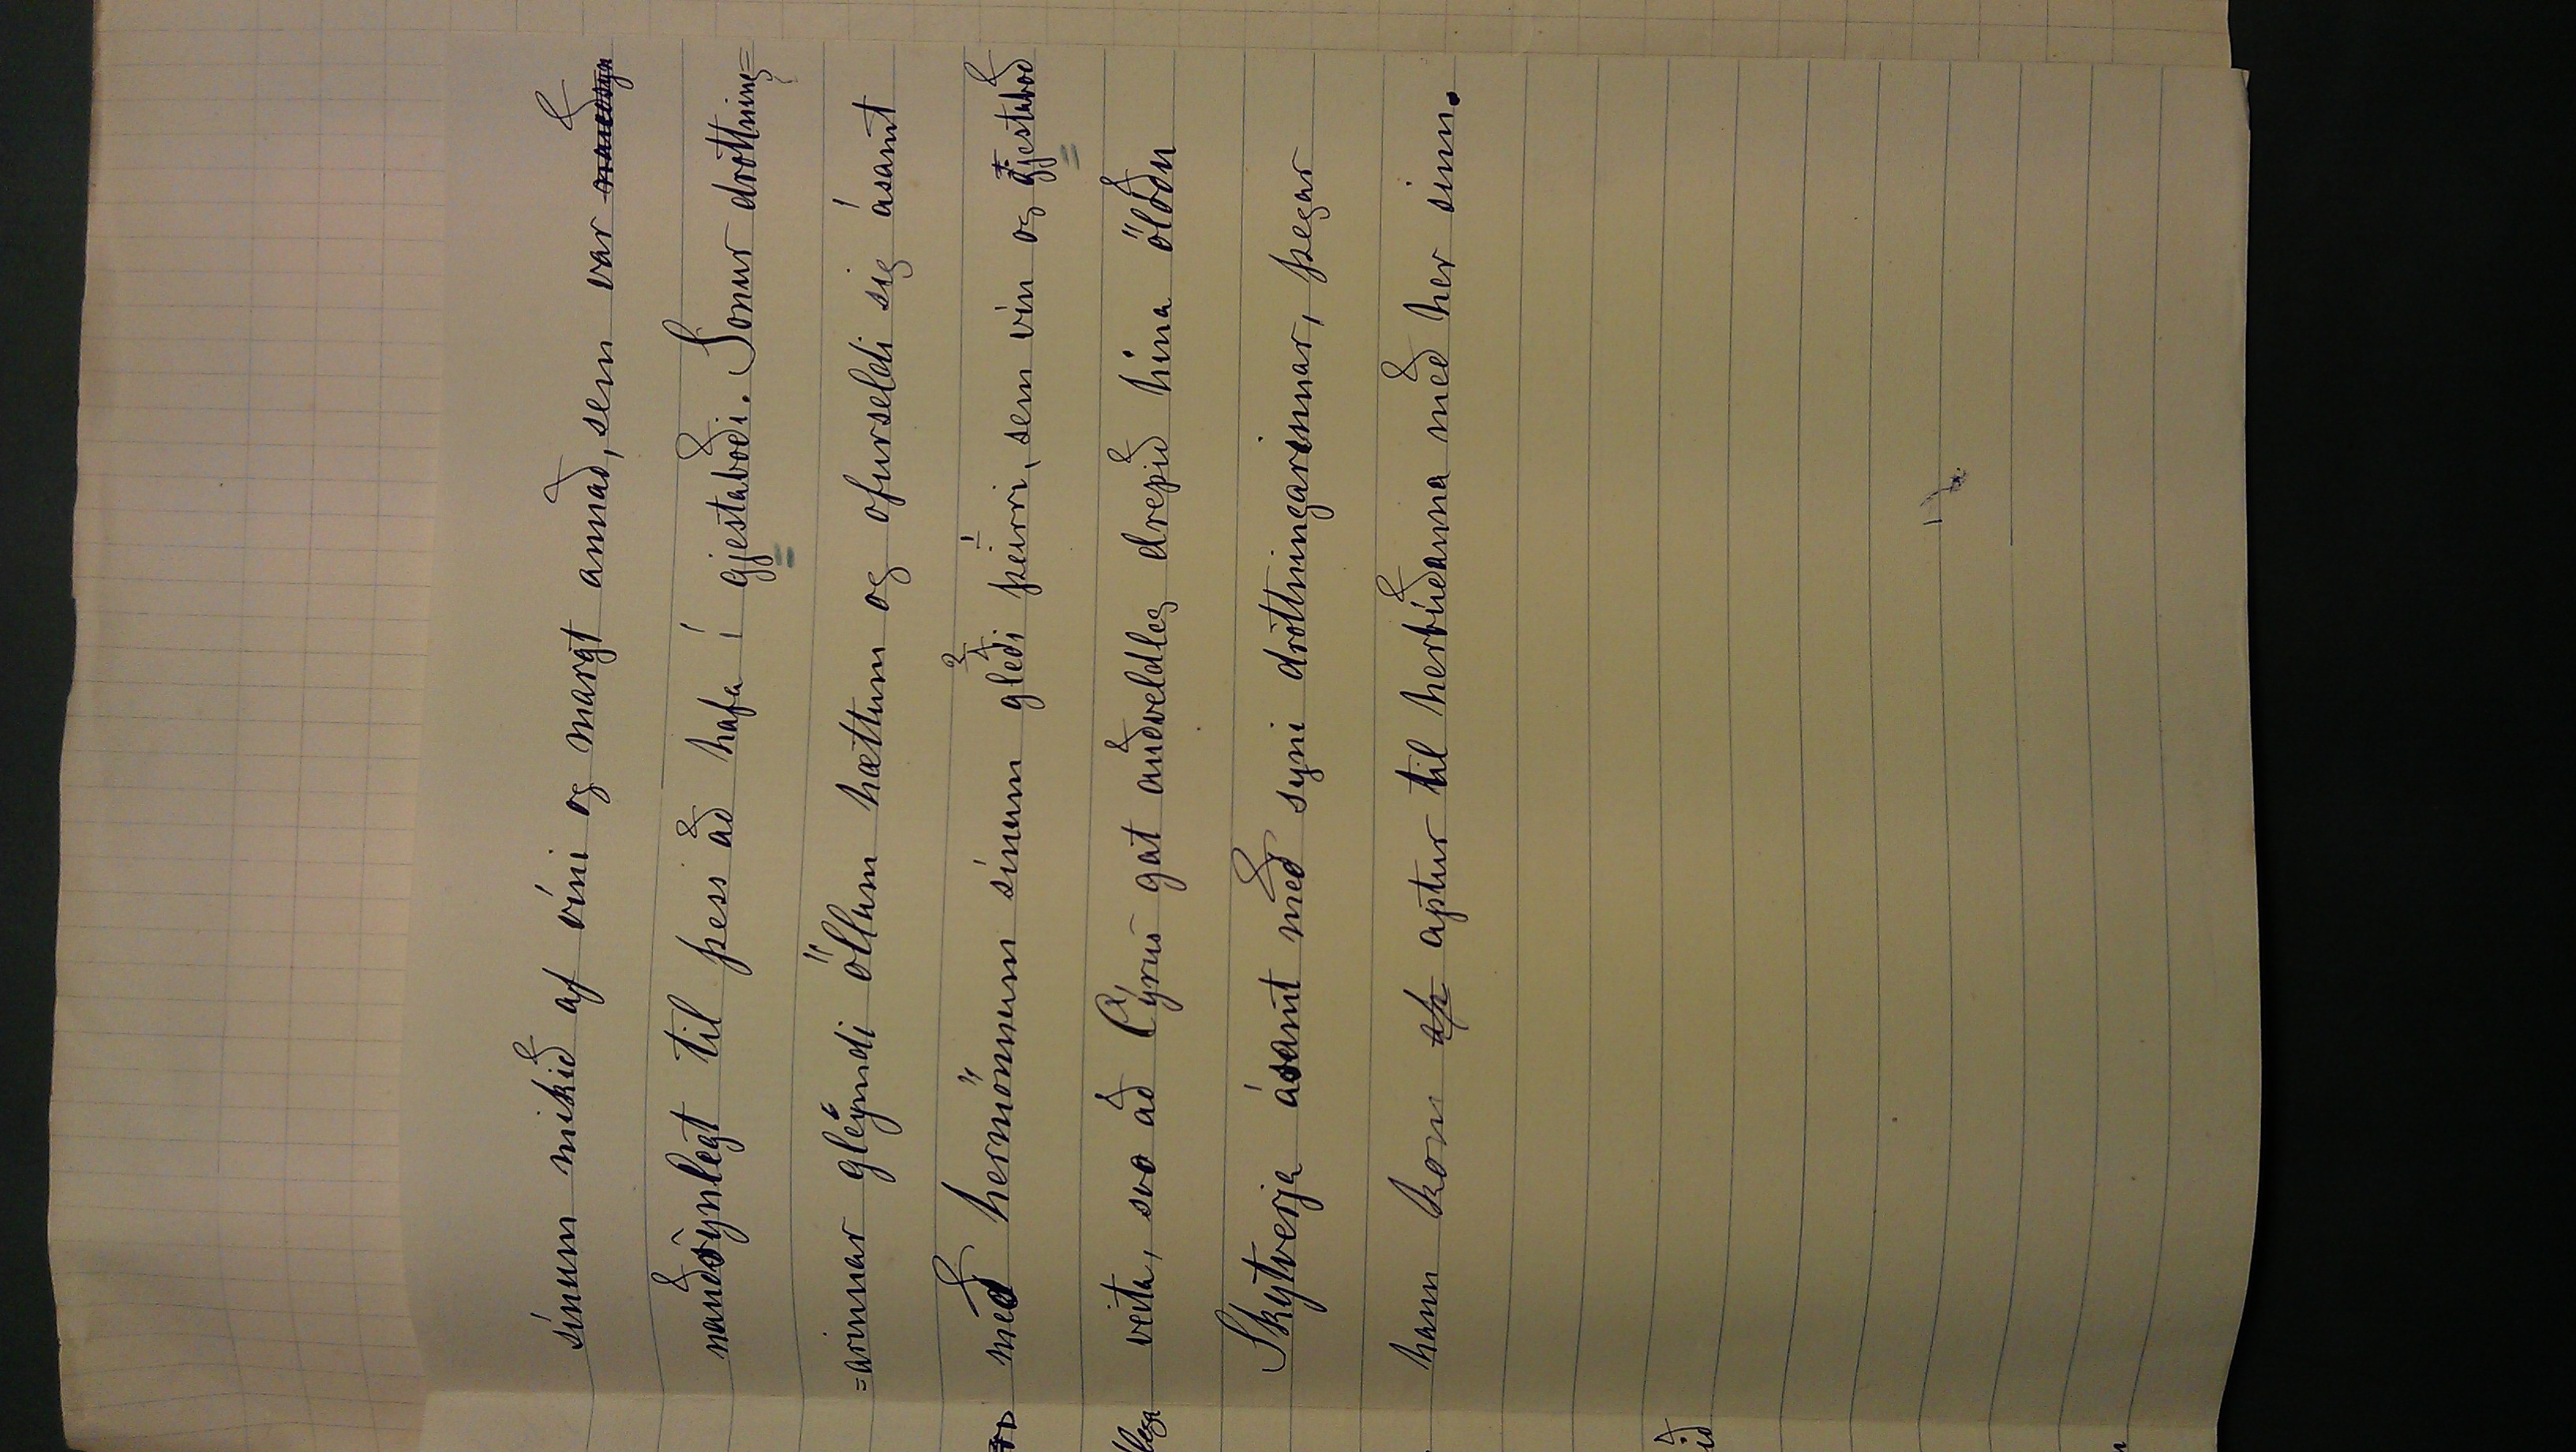 sínum mikið af víni og margt annað, sem var
nauðsýnlegt til þess að hafa í gjestaboði. Sonur drottning=
=arinnar gleymdi öllum hættum og ofurseldi sig ásamt
með hermönnum sínum gleði þeirri, sem vín og gjestaboð
veita, svo að Cýrus gat auðveldleg drepið hina öldnu
Skytverja ásamt með syni drottningarinnar, þegar
hann kom aptur til herbúðanna með her sinn.